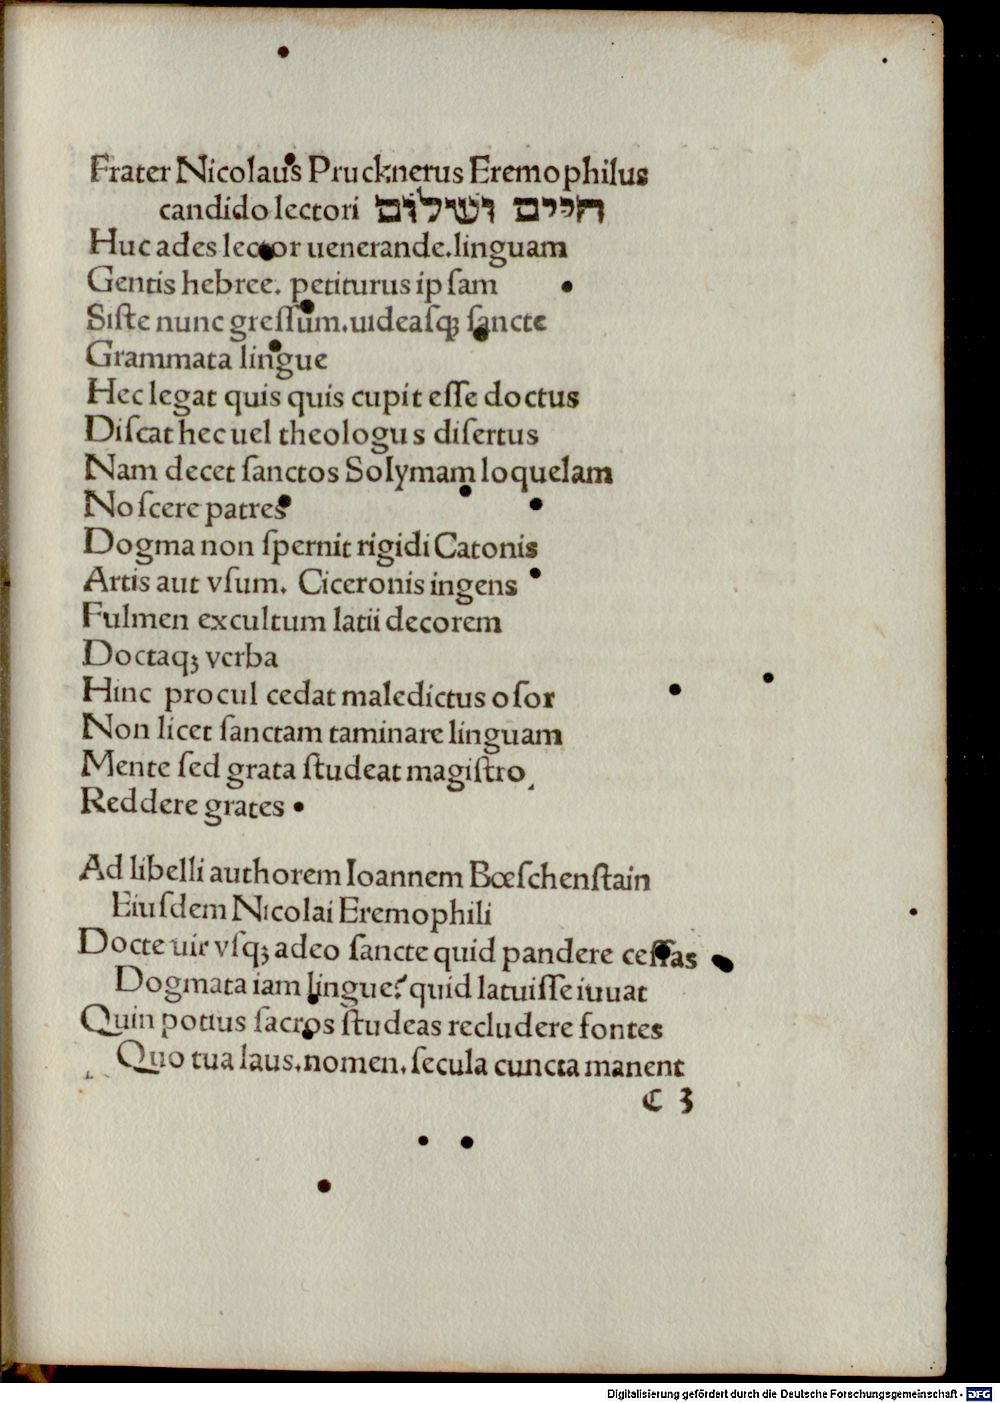 Frater Nicolaus Prucknerus Eremophilus
candido lectori חיים ושלום
Huc ades lector uenerande.linguam
Gentis hebree. petiturus ipſam
Siſte nunc greſſum.uideaſqꝫ ſancte
Grammata lingue
Hec legat quis quis cupit eſſe doctus
Diſcat hec uel theologus diſertus
Nam decet ſanctos Solymam loquelam
Noſcere patres
Dogma non ſpernit rigidi Catonis
Artis aut vſum. Ciceronis ingens
Fulmen excultum latii decorem
Doctaqꝫ verba
Hinc procul cedat maledictus oſor
Non licet ſanctam taminare linguam
Mente ſed grata ſtudeat magiſtro
Reddere grates
Ad libelli authorem Ioannem Bœſchenſtain
Eiuſdem Nicolai Eremophili
Docte uir vſqꝫ adeo ſancte quid pandere ceſſas
Dogmata iam lingue? quid latuiſſe iuuat
Quin potius ſacros ſtudeas recludere fontes
Quo tua laus.nomen.ſecula cuncta manent
C 3
Digitalisierung gefördert durch die Deutsche Forschungsgemeinschaft - DFG